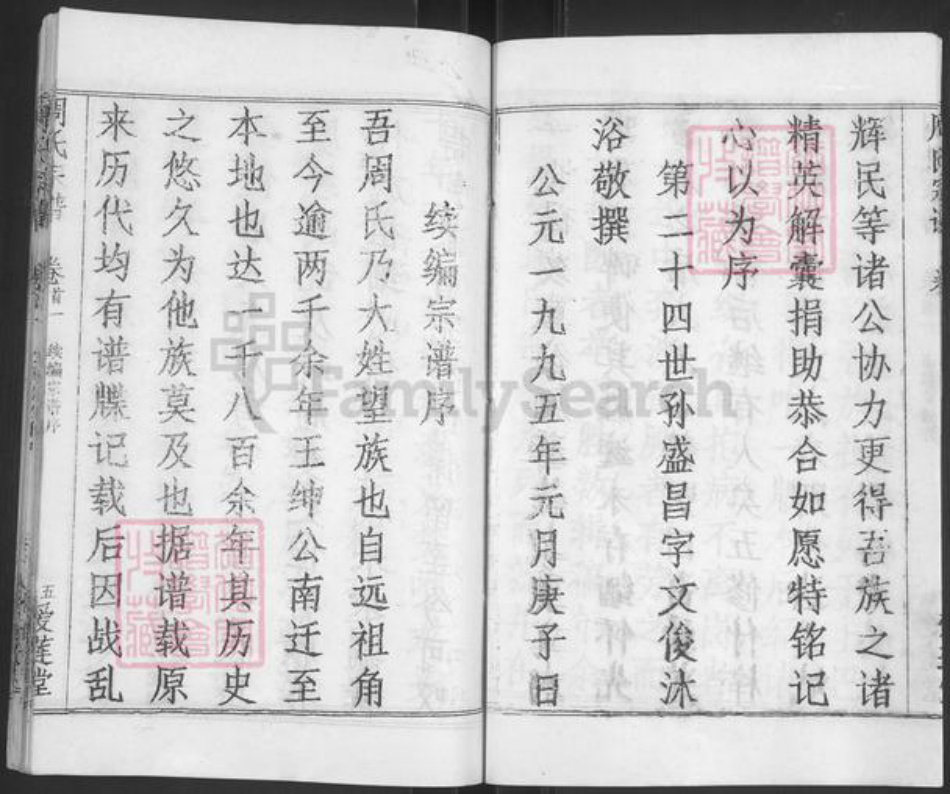 辉民等诸公协力更得吾族之诸
精英解囊捐助恭合如愿特铭记
心以为序
第二十四世孙盛昌字文俊沐
浴敬撰
公元一九九五年元月庚子日
续编宗谱序
吾周氏乃大姓望族也自远祖角
至今逾两千余年王绅公南迁至
本地也达一千八百余年其历史
之悠久为他族莫及也据谱载原
来历代均有谱牒记载后因战乱
周氏宗谱
卷首一
续编宗谱序
五
爱莲堂
FamilySearch